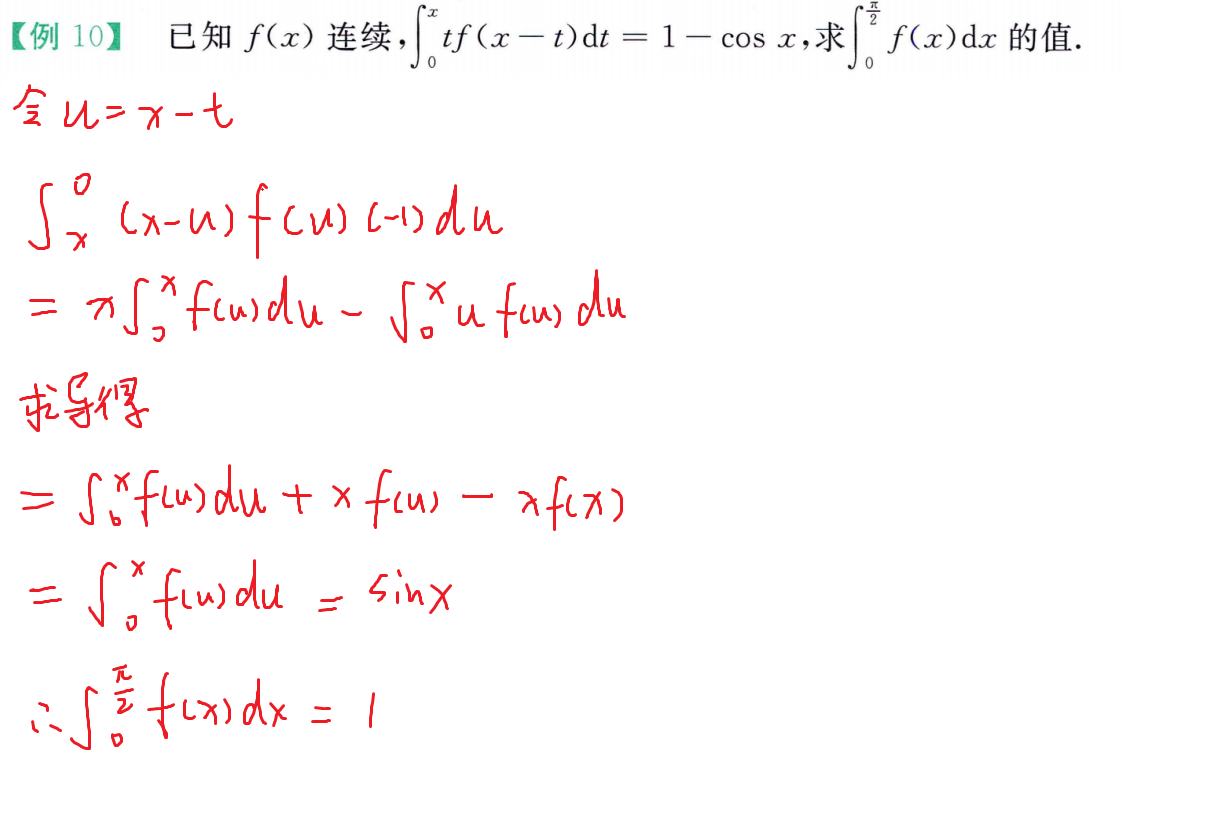 【例 10】 已知 f(x) 连续,∫₀ˣ tf(x－t)dt = 1－cos x,求∫₀^(π/2) f(x)dx 的值.
令 u = x－t
∫ₓ⁰ (x-u) f(u) (-1) du
= x∫₀ˣ f(u)du － ∫₀ˣ u f(u) du
求导得
= ∫₀ˣ f(u)du + x f(u) － xf(x)
= ∫₀ˣ f(u)du = sinx
∴∫₀^(π/2) f(x)dx = 1